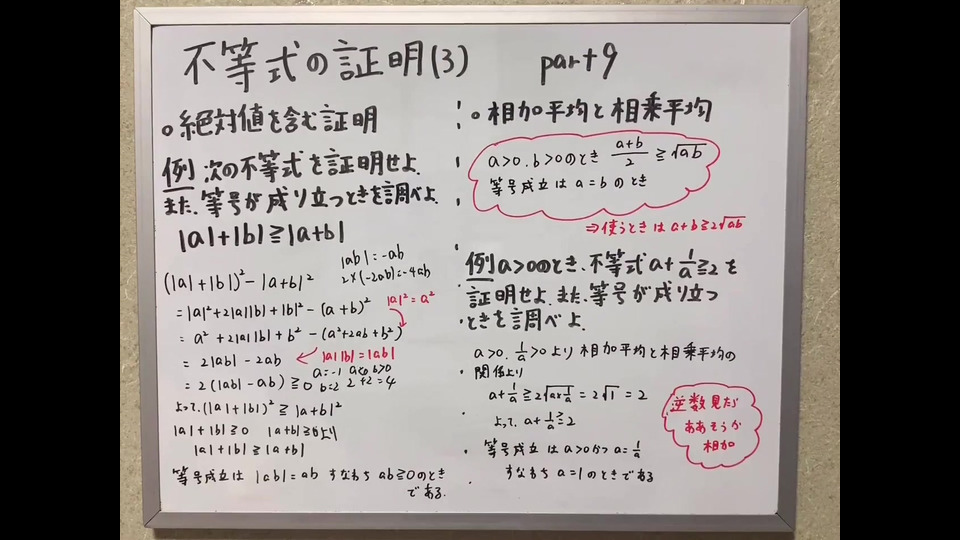 不等式の証明(3) part9
○絶対値を含む証明
例 次の不等式を証明せよ.
また、等号が成り立つときを調べよ.
|a|+|b|≧|a+b|
(|a|+|b|)²-|a+b|²
|ab|=-ab
2×(-2ab)=-4ab
=|a|²+2|a||b|+|b|²-(a+b)²
|a|²=a²
=a²+2|a||b|+b²-(a²+2ab+b²)
=2|ab|-2ab
←|a||b|=|ab|
=2(|ab|-ab)≧0
a=-1 a<0 b>0
b=2 2+2=4
よって、(|a|+|b|)²≧|a+b|²
|a|+|b|≧0 |a+b|≧0より
|a|+|b|≧|a+b|
等号成立は |ab|=ab すなわち ab≧0のとき
である.
○相加平均と相乗平均
a>0.b>0のとき a+b/2≧√ab
等号成立は a=b のとき
⇒使うときは a+b≧2√ab
例 a>0のとき、不等式a+1/a≧2を
証明せよ.また、等号が成り立つ
ときを調べよ.
a>0.1/a>0より 相加平均と相乗平均の
関係より
a+1/a≧2√a×1/a=2√1=2
よって a+1/a≧2
等号成立は a>0かつ a=1/a
すなわち a=1のときである
逆数見たら
ああそうか
相加